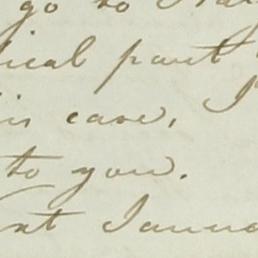 go to
ical part
is case, I
to you.
nt Janua